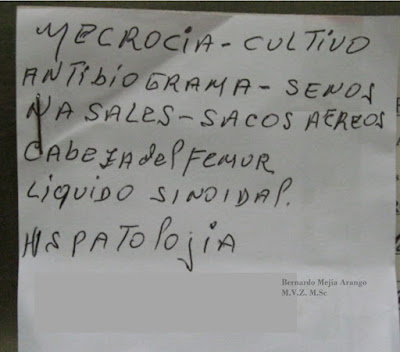 MECROCIA - CULTIVO
ANTIBIOGRAMA - SENOS
NASALES - SACOS AÉREOS
CABEZA del FEMUR
LIQUIDO SINOIDAL.
HISPATOLOJIA
Bernardo Mejía Arango
M.V.Z. M.Sc